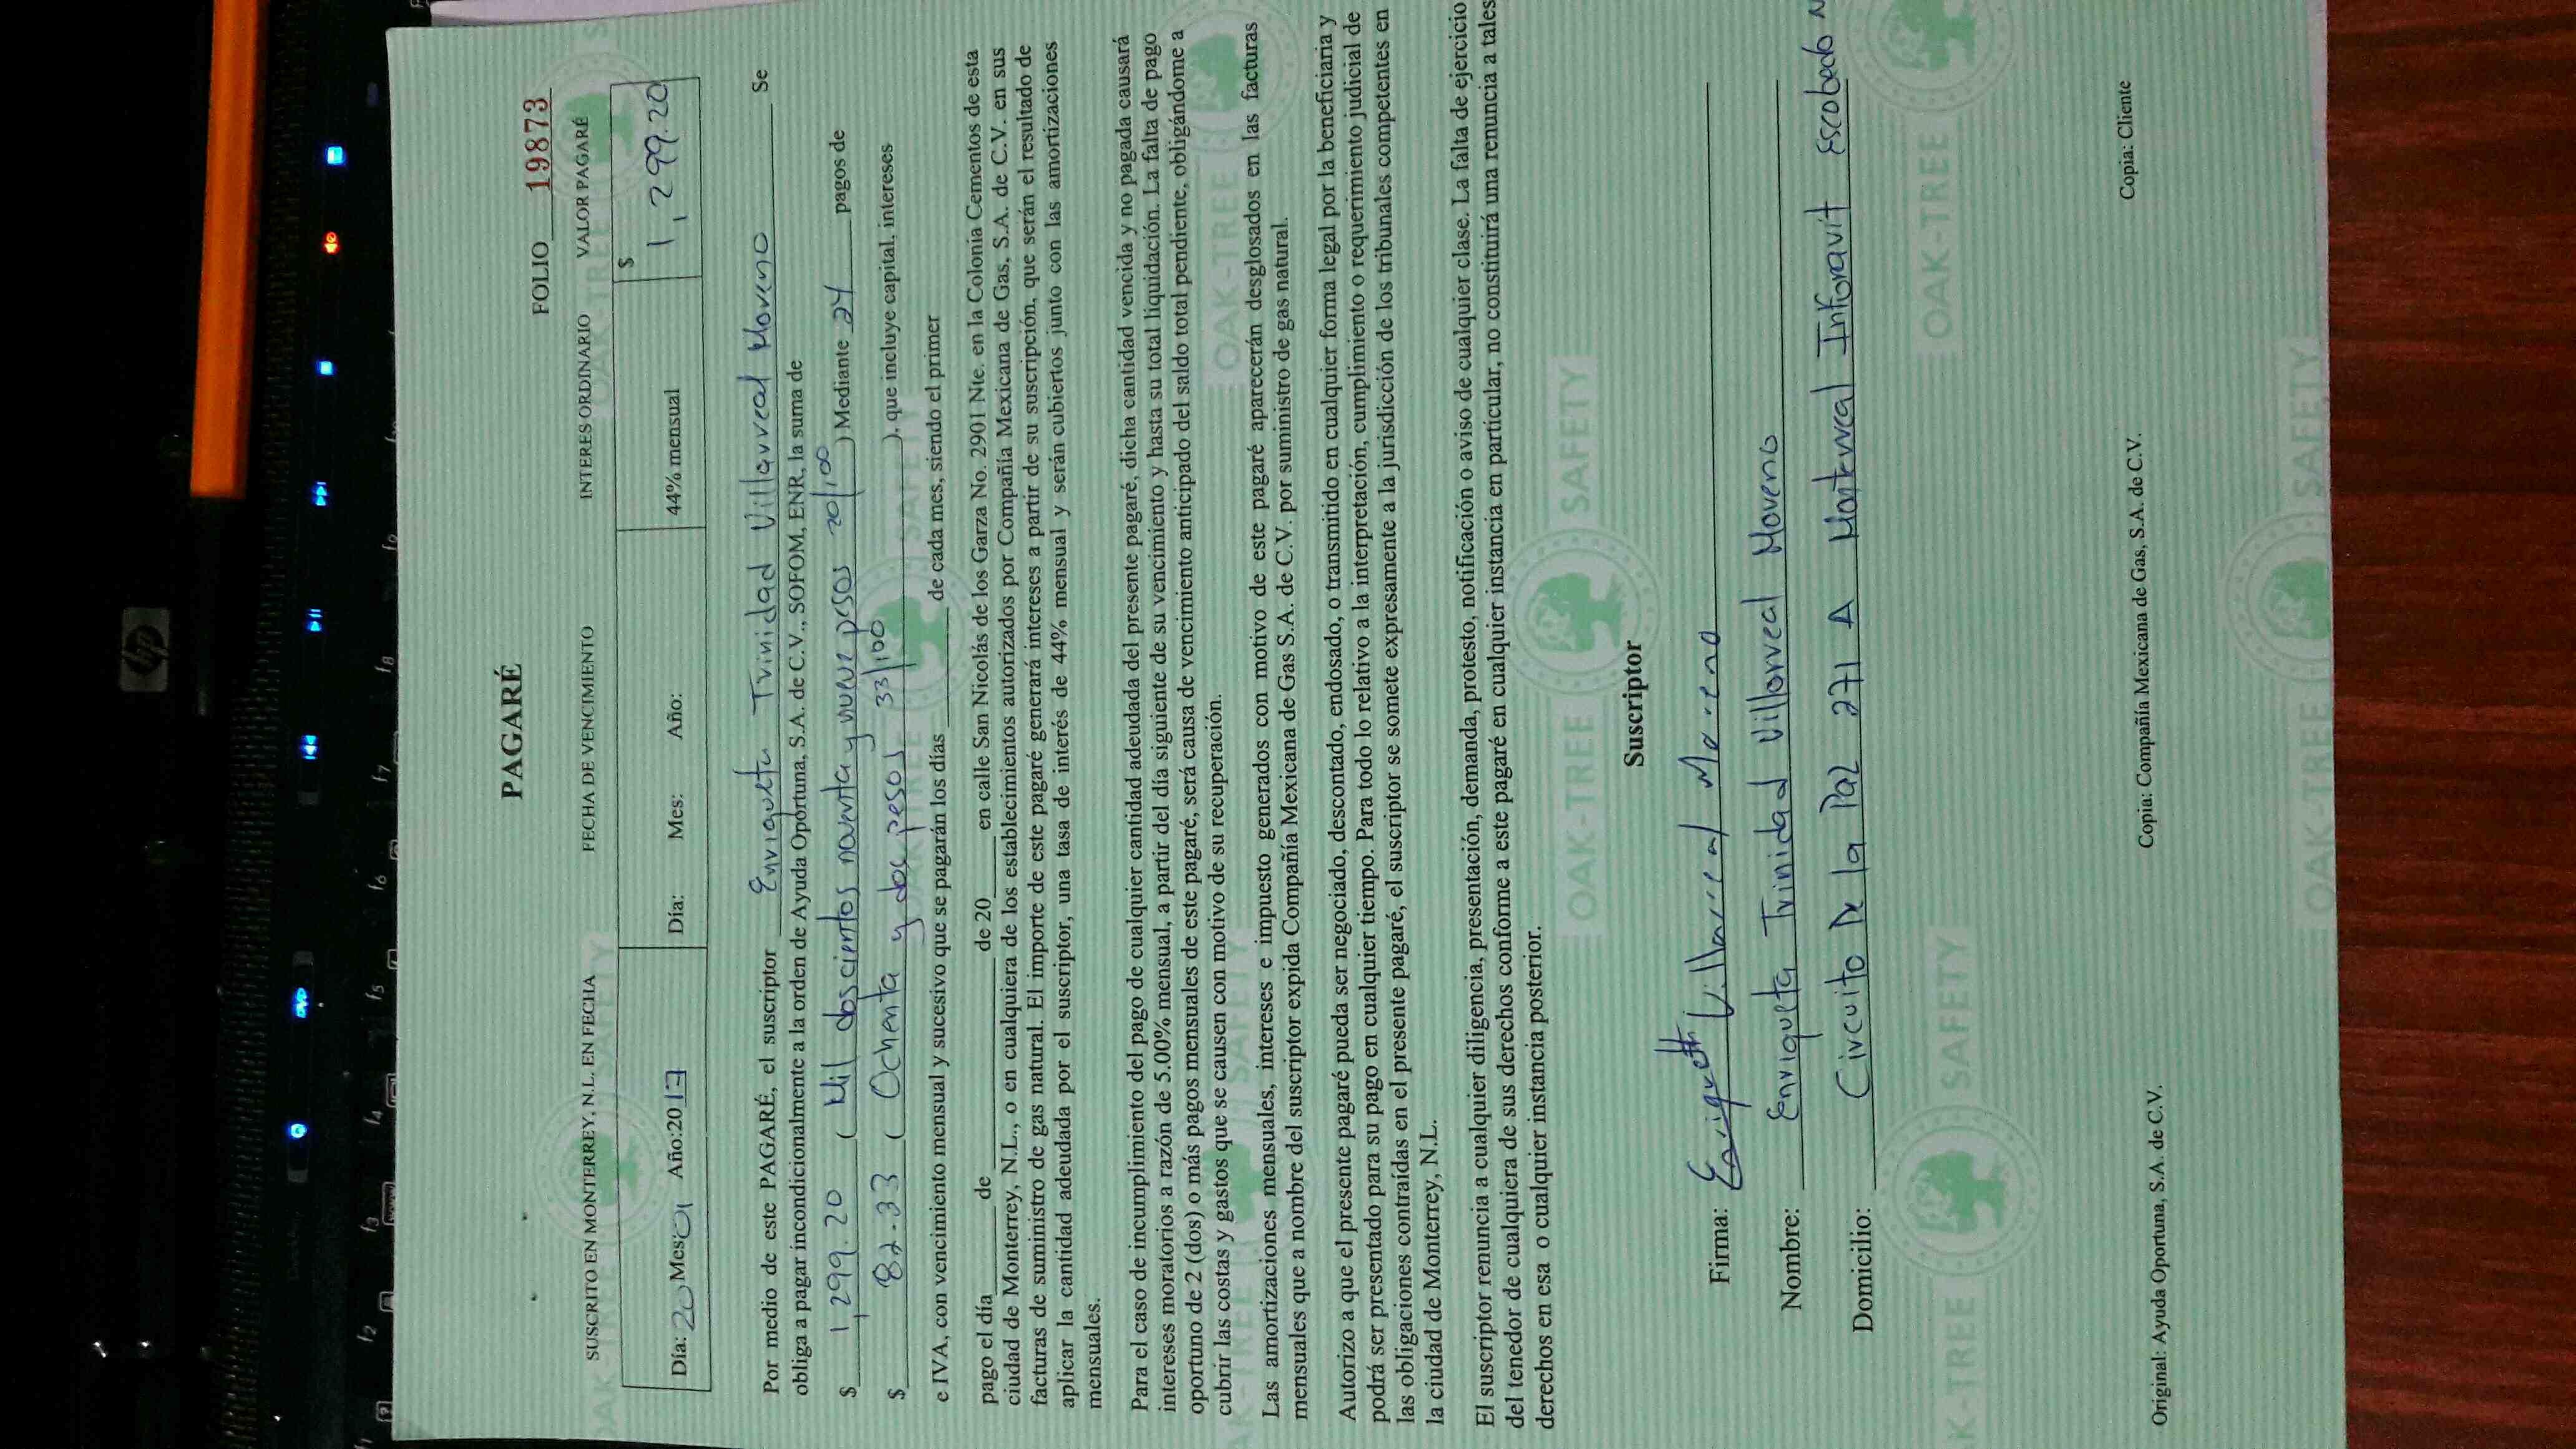 PAGARÉ
FOLIO 19873
SUSCRITO EN MONTERREY, N.L. EN FECHA FECHA DE VENCIMIENTO INTERES ORDINARIO VALOR PAGARÉ
Día: 20 Mes: 01 Año:2017 Día: Mes: Año: 44% mensual $ 1,299.20
Por medio de este PAGARÉ, el suscriptor Enriqueta Trinidad Villarreal Moreno Se
obliga a pagar incondicionalmente a la orden de Ayuda Oportuna, S.A. de C.V., SOFOM, ENR, la suma de
$ 1,299.20 ( Mil doscientos noventa y nueve pesos 20/100 ) Mediante 24 pagos de
$ 82.33 ( Ochenta y dos pesos 33/100 ), que incluye capital, intereses
e IVA, con vencimiento mensual y sucesivo que se pagarán los días de cada mes, siendo el primer
pago el día de de 20 en calle San Nicolás de los Garza No. 2901 Nte. en la Colonia Cementos de esta
ciudad de Monterrey, N.L., o en cualquiera de los establecimientos autorizados por Compañía Mexicana de Gas, S.A. de C.V. en sus
facturas de suministro de gas natural. El importe de este pagaré generará intereses a partir de su suscripción, que serán el resultado de
aplicar la cantidad adeudada por el suscriptor, una tasa de interés de 44% mensual y serán cubiertos junto con las amortizaciones
mensuales.
Para el caso de incumplimiento del pago de cualquier cantidad adeudada del presente pagaré, dicha cantidad vencida y no pagada causará
intereses moratorios a razón de 5.00% mensual, a partir del día siguiente de su vencimiento y hasta su total liquidación. La falta de pago
oportuno de 2 (dos) o más pagos mensuales de este pagaré, será causa de vencimiento anticipado del saldo total pendiente, obligándome a
cubrir las costas y gastos que se causen con motivo de su recuperación.
Las amortizaciones mensuales, intereses e impuesto generados con motivo de este pagaré aparecerán desglosados en las facturas
mensuales que a nombre del suscriptor expida Compañía Mexicana de Gas S.A. de C.V. por suministro de gas natural.
Autorizo a que el presente pagaré pueda ser negociado, descontado, endosado, o transmitido en cualquier forma legal por la beneficiaria y
podrá ser presentado para su pago en cualquier tiempo. Para todo lo relativo a la interpretación, cumplimiento o requerimiento judicial de
las obligaciones contraídas en el presente pagaré, el suscriptor se somete expresamente a la jurisdicción de los tribunales competentes en
la ciudad de Monterrey, N.L.
El suscriptor renuncia a cualquier diligencia, presentación, demanda, protesto, notificación o aviso de cualquier clase. La falta de ejercicio
del tenedor de cualquiera de sus derechos conforme a este pagaré en cualquier instancia en particular, no constituirá una renuncia a tales
derechos en esa o cualquier instancia posterior.
Suscriptor
Firma: Enriqueta Villarreal Moreno
Nombre: Enriqueta Trinidad Villarreal Moreno
Domicilio: Circuito De la Paz 271 A Monterreal Infonavit Escobedo N
Original: Ayuda Oportuna, S.A. de C.V. Copia: Compañía Mexicana de Gas, S.A. de C.V. Copia: Cliente
OAK-TREE SAFETY
hp